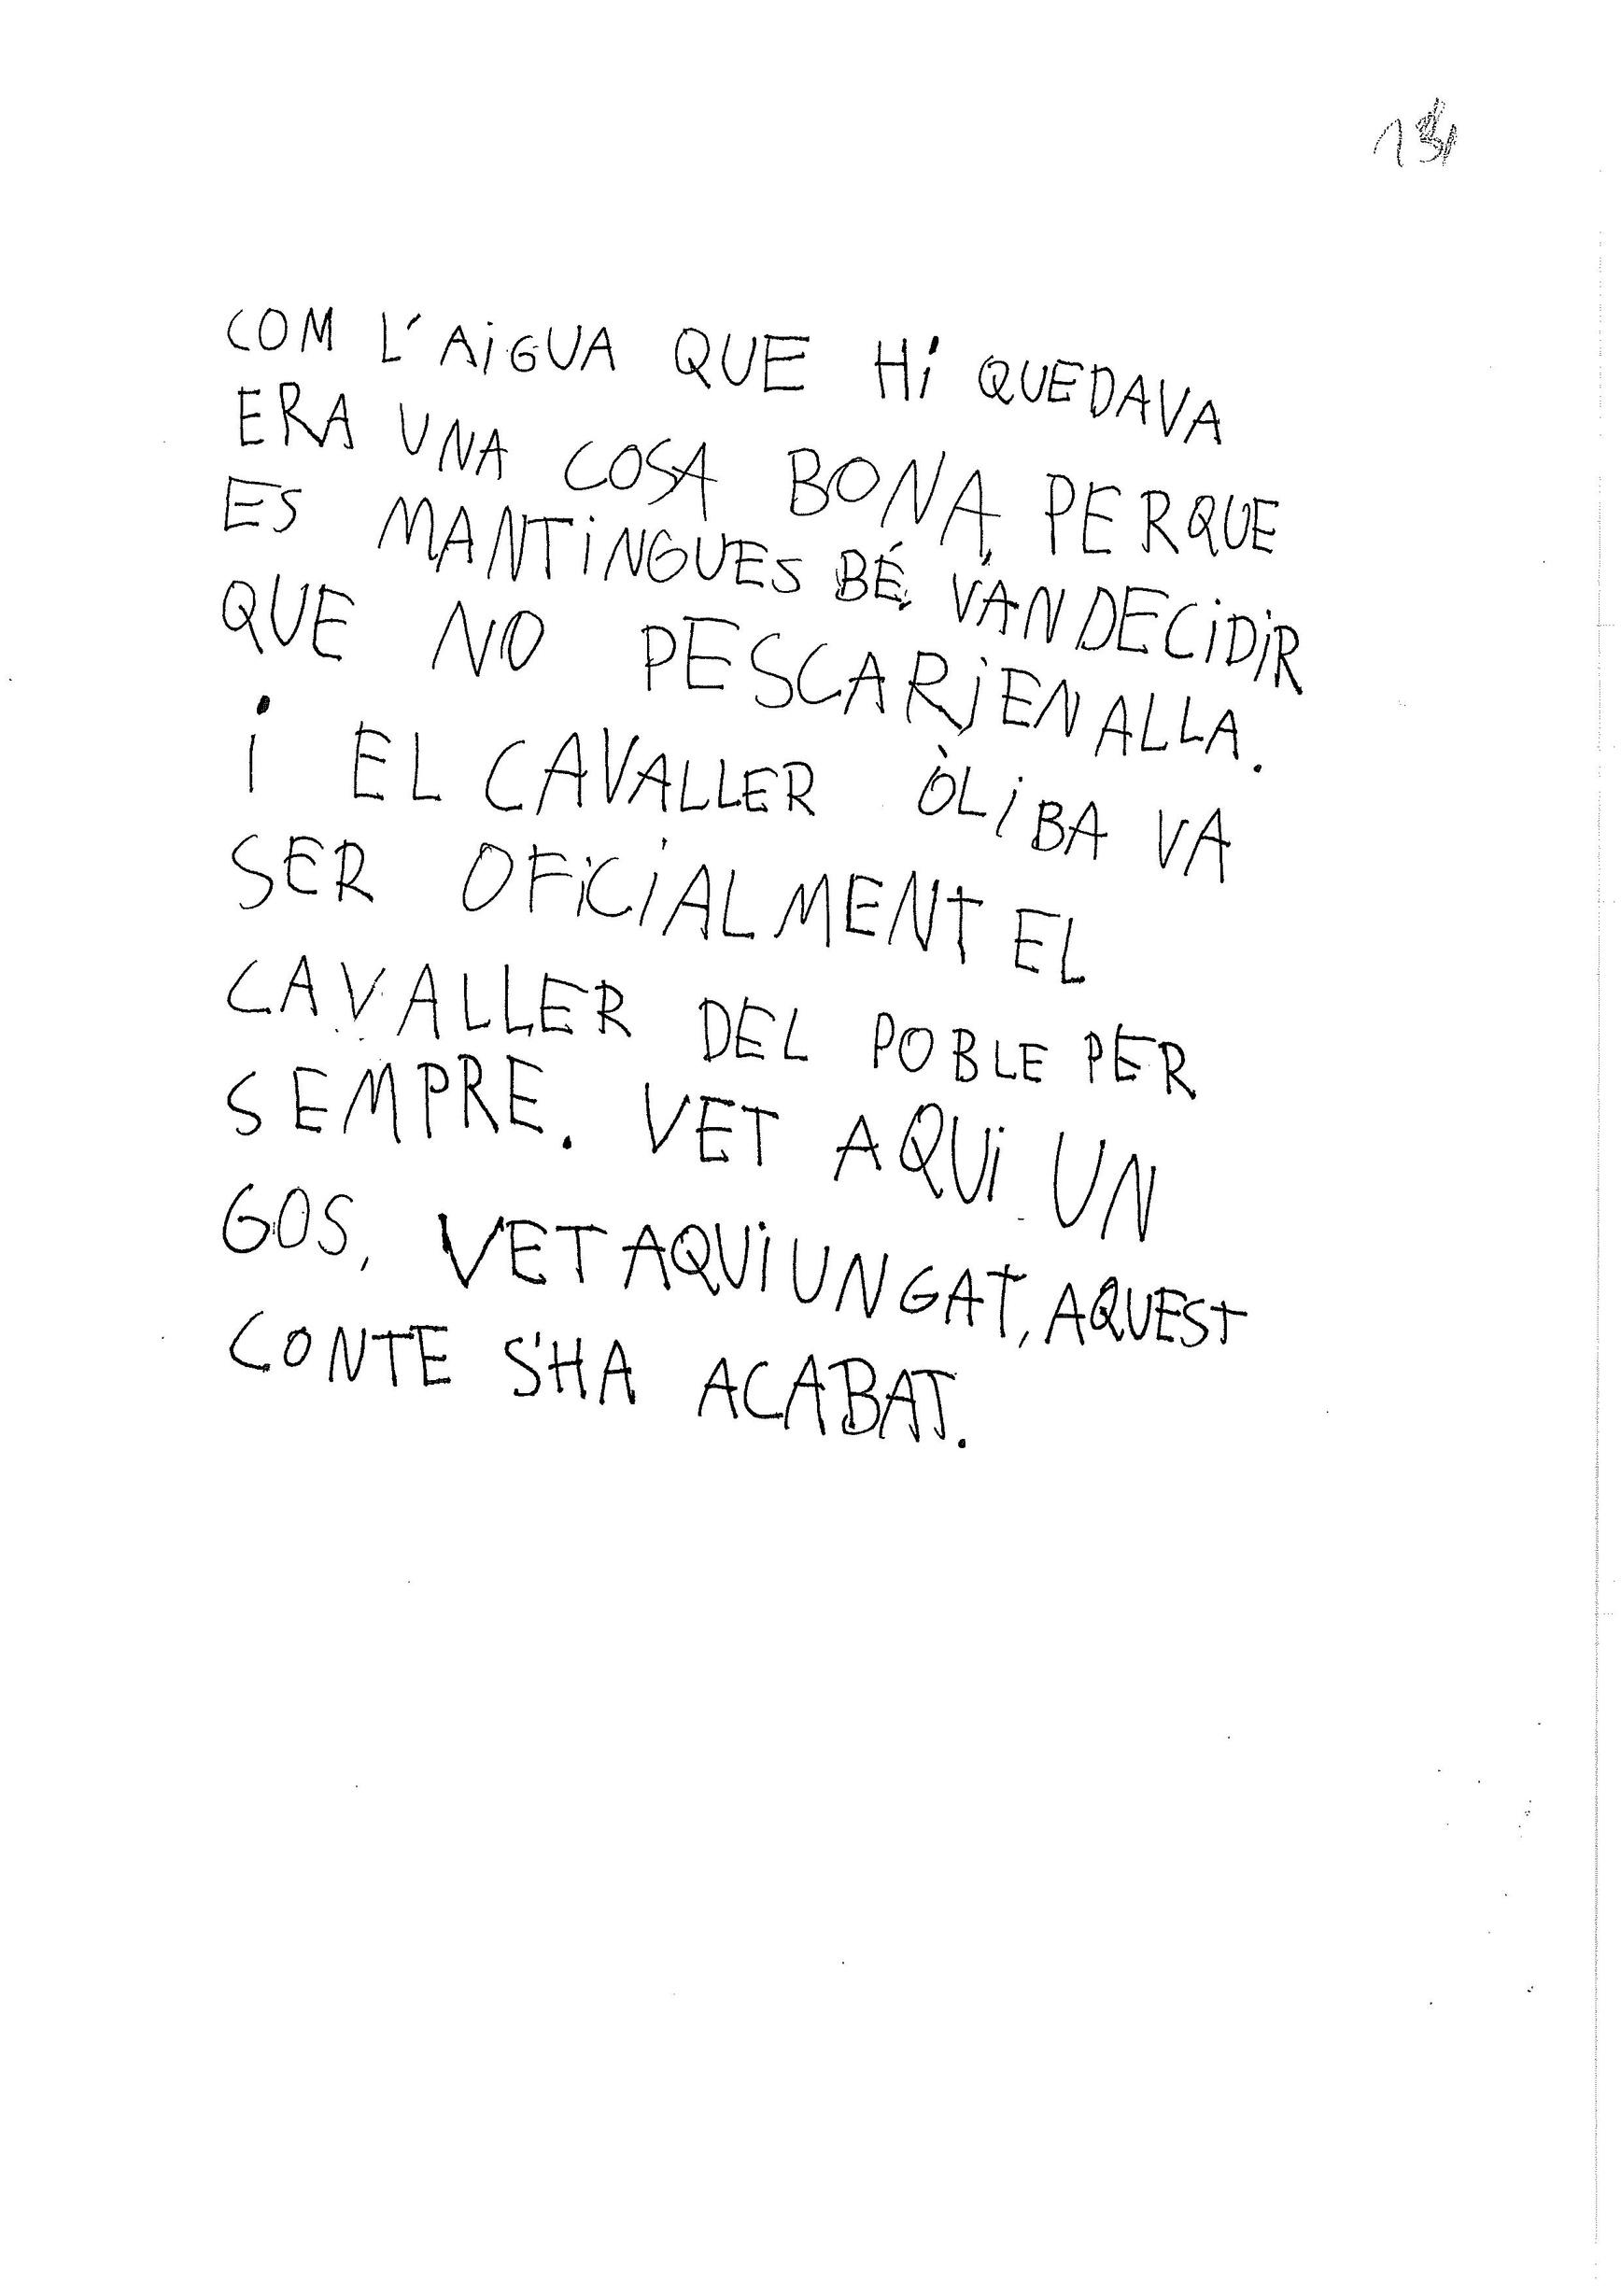 COM L'AiGUA QUE Hi QUEDAVA
ERA UNA COSA BONA, PERQUE
ES MANTiNGUES BÉ, VAN DECiDiR
QUE NO PESCARiEN ALLA.
i EL CAVALLER ÒLiBA VA
SER OFiCiALMENT EL
CAVALLER DEL POBLE PER
SEMPRE. VET AQUi UN
GOS, VET AQUi UN GAT, AQUEST
CONTE S'HA ACABAT.